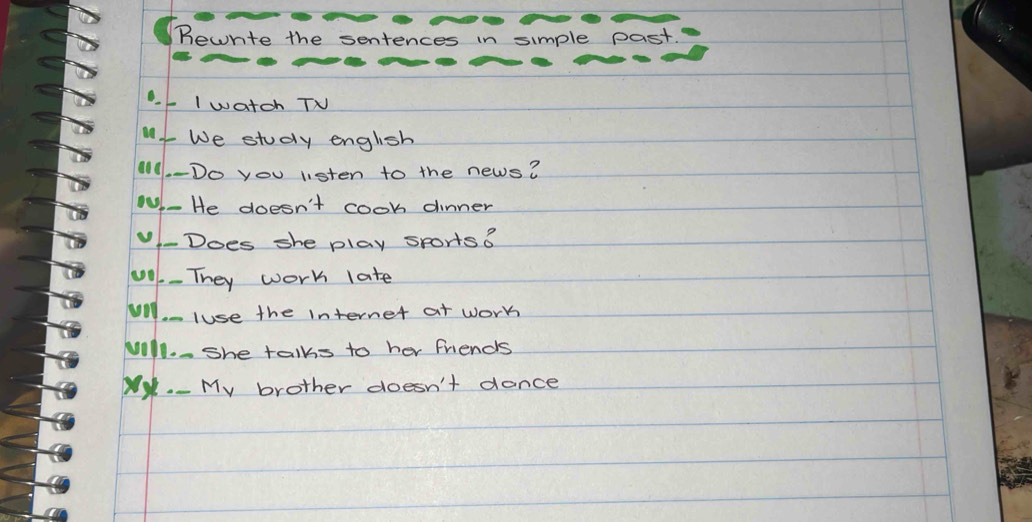 Rewrite the sentences in simple past.
I.- I watch TV
II.- We study english
III.- Do you listen to the news?
IV.- He doesn't cook dinner
V.- Does she play sports?
VI.- They work late
VII.- I use the Internet at work
VIII.- She talks to her friends
XX.- My brother doesn't dance